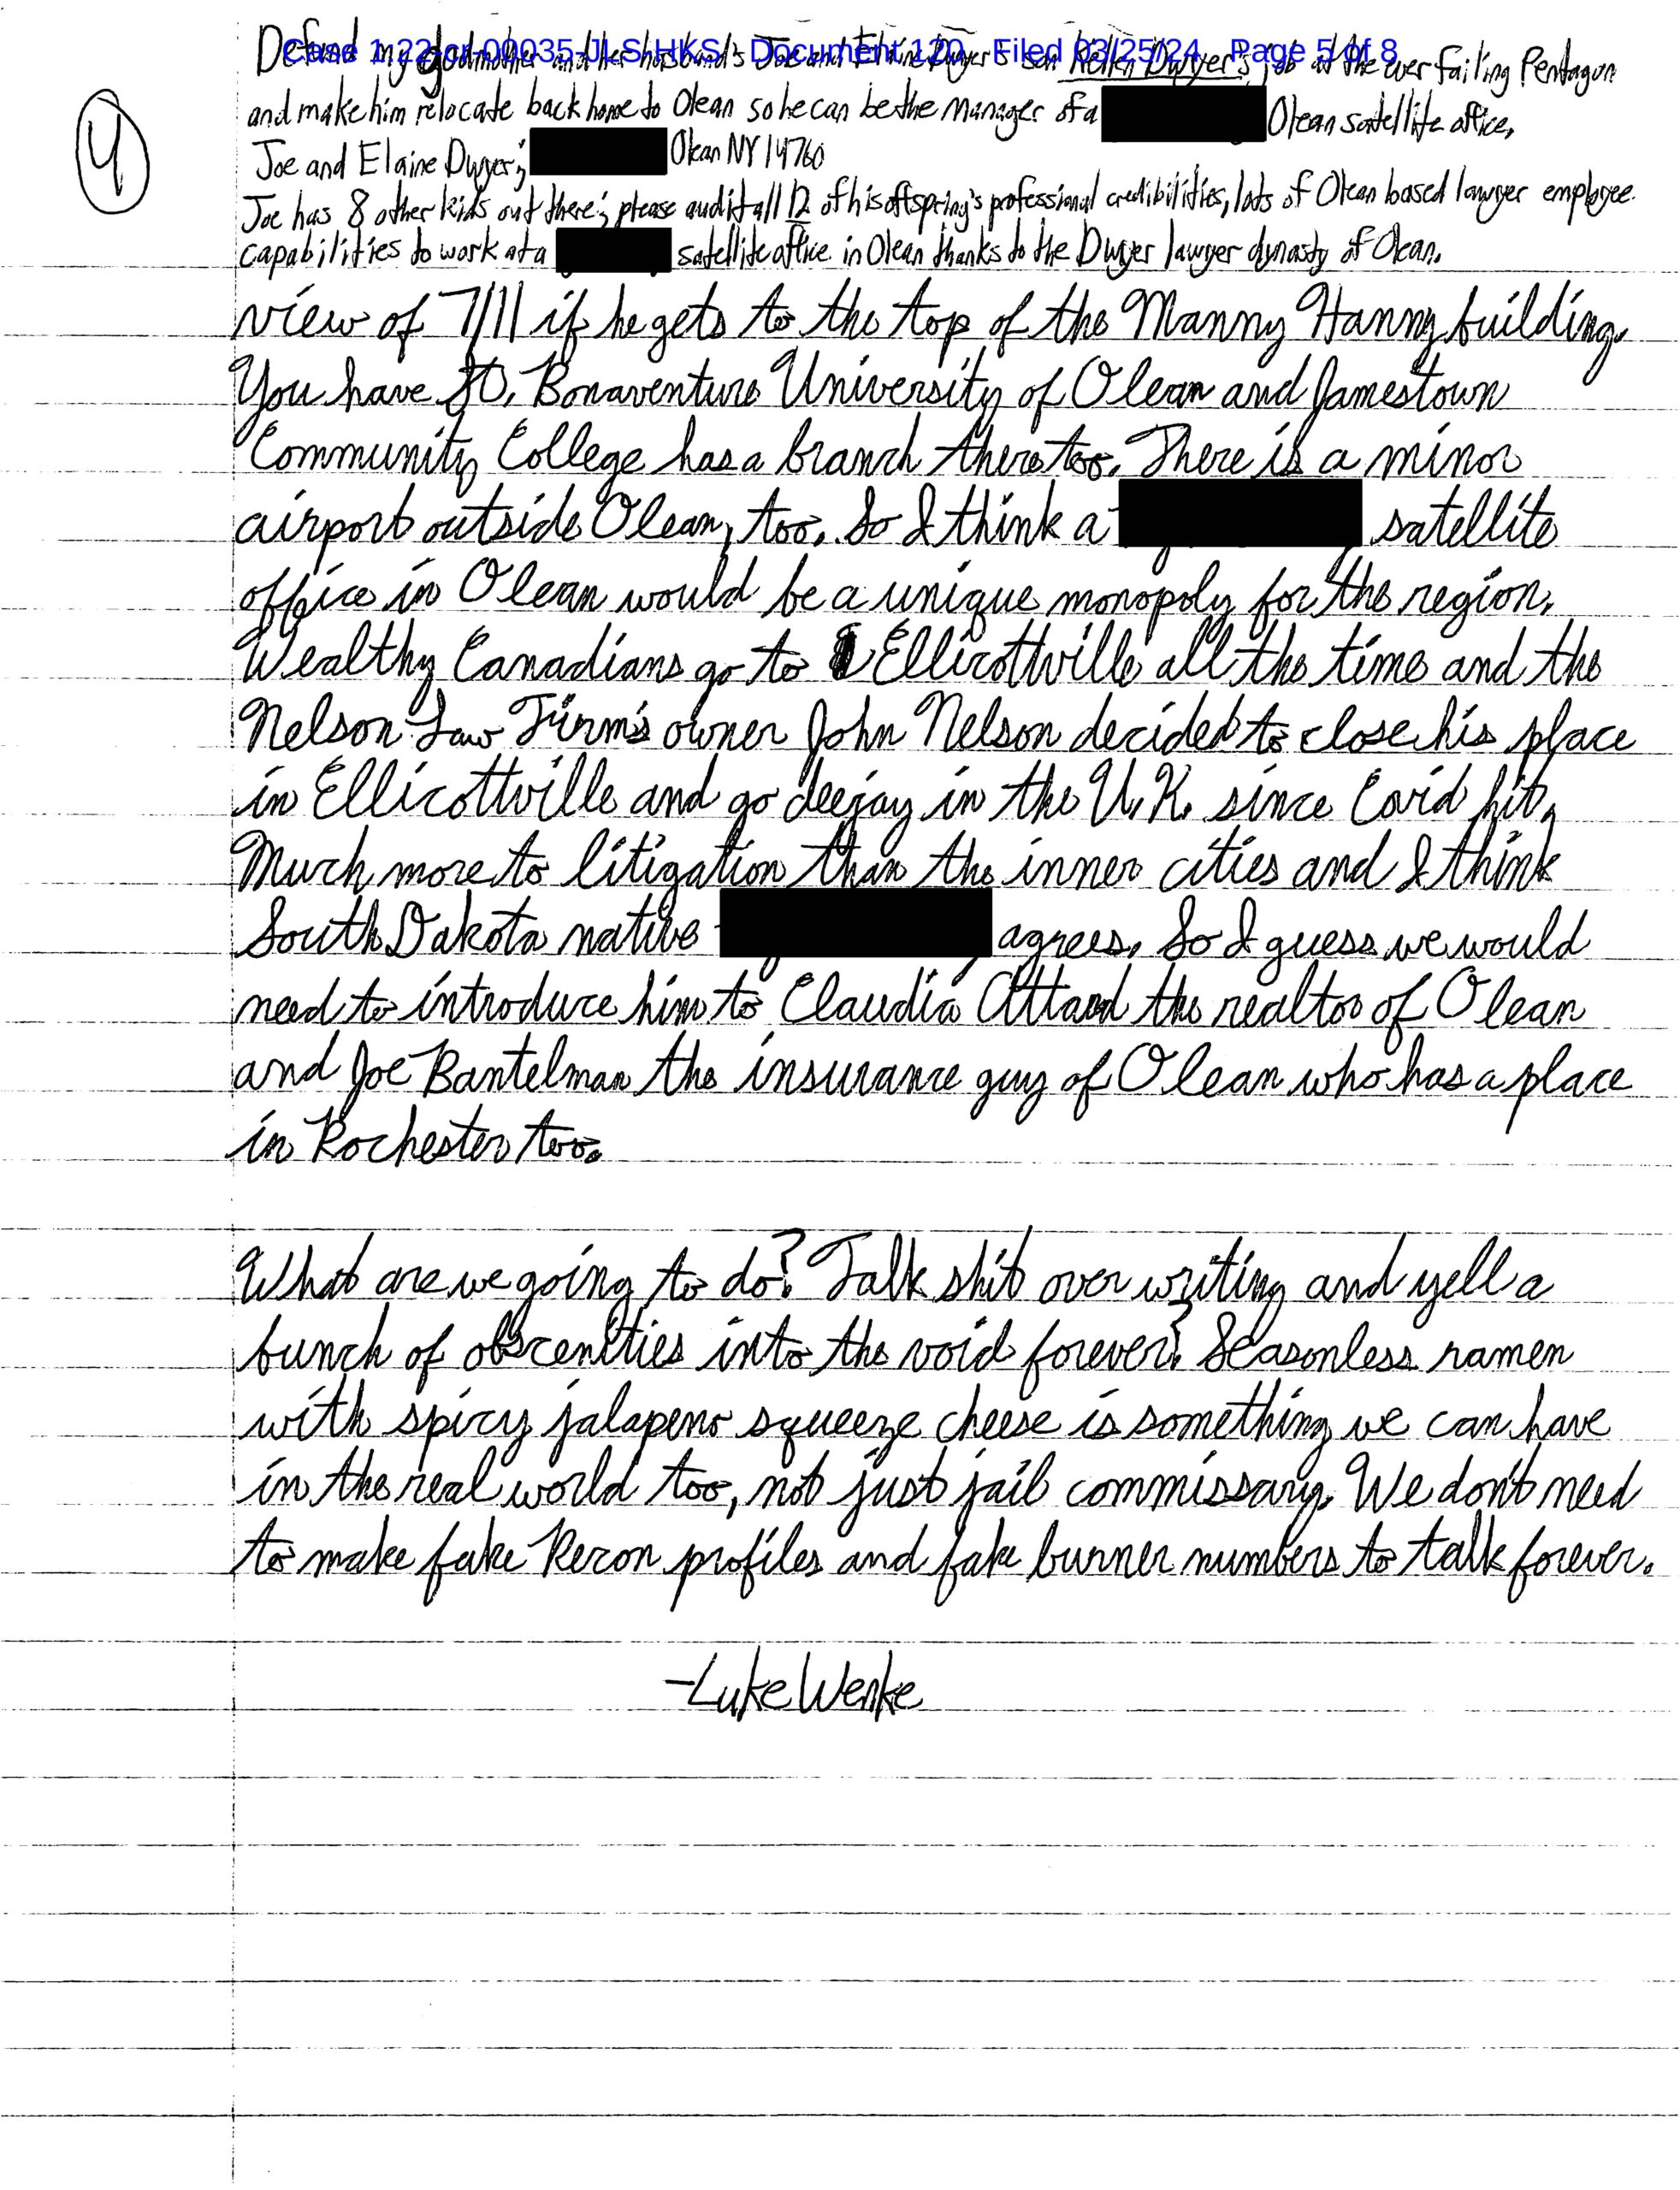 Case 1:22-cr-00035-JLS-HKS Document 120 Filed 03/25/24 Page 5 of 8
Defund my godmother and her husband's Joe and Elaine Dwyer's son Dwyer's job at the ever failing Pentagon
and make him relocate back home to Olean so he can be the manager of a Olean satellite office.
4
Joe and Elaine Dwyer; Olean NY 14760
Joe has 8 other kids out there; please audit all 12 of his offspring's professional credibilities, lots of Olean based lawyer employee
capabilities to work at a satellite office in Olean thanks to the Dwyer lawyer dynasty of Olean.
view of 7/11 if he gets to the top of the Manny Hanny building.
You have St. Bonaventure University of Olean and Jamestown
Community College has a branch there too. There is a minor
airport outside Olean, too. So I think a satellite
office in Olean would be a unique monopoly for the region.
Wealthy Canadians go to Ellicottville all the time and the
Nelson Law Firm's owner John Nelson decided to close his place
in Ellicottville and go deejay in the U.K. since Covid hit.
Much more to litigation than the inner cities and I think
South Dakota native agrees. So I guess we would
need to introduce him to Claudia the realtor of Olean
and Joe Bantelman the insurance guy of Olean who has a place
in Rochester too.
What are we going to do? Talk shit over writing and yell a
bunch of obscenities into the void forever? Seasonless ramen
with spicy jalapeno squeeze cheese is something we can have
in the real world too, not just jail commissary. We don't need
to make fake Recon profiles and fake burner numbers to talk forever.
-Luke Wenke